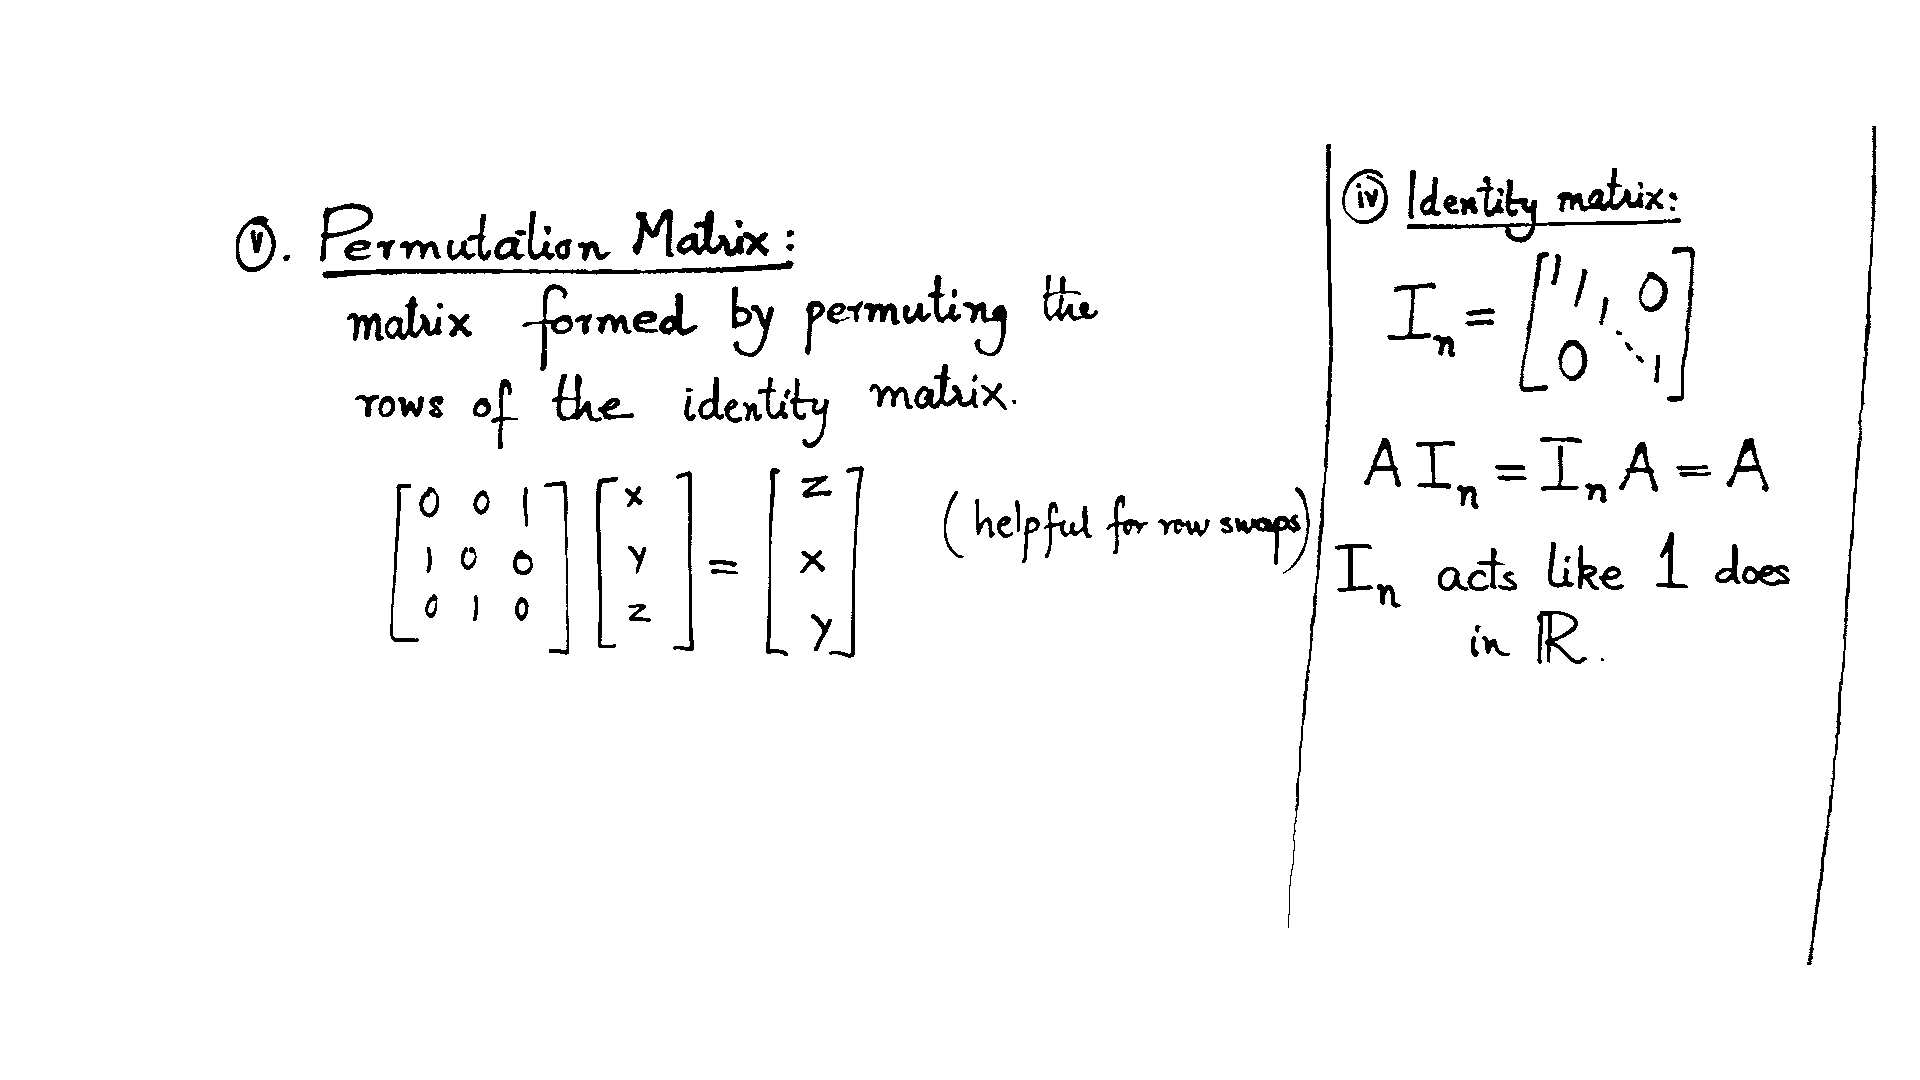 ⓥ. Permutation Matrix:
matrix formed by permuting the
rows of the identity matrix.
[0 0 1] [x] = [z]
[1 0 0] [y] = [x]
[0 1 0] [z] = [y]
(helpful for row swaps)
ⓘⓥ Identity matrix:
Iₙ = [1 1 1 0
0 ⋱ 1]
A Iₙ = Iₙ A = A
Iₙ acts like 1 does
in ℝ.